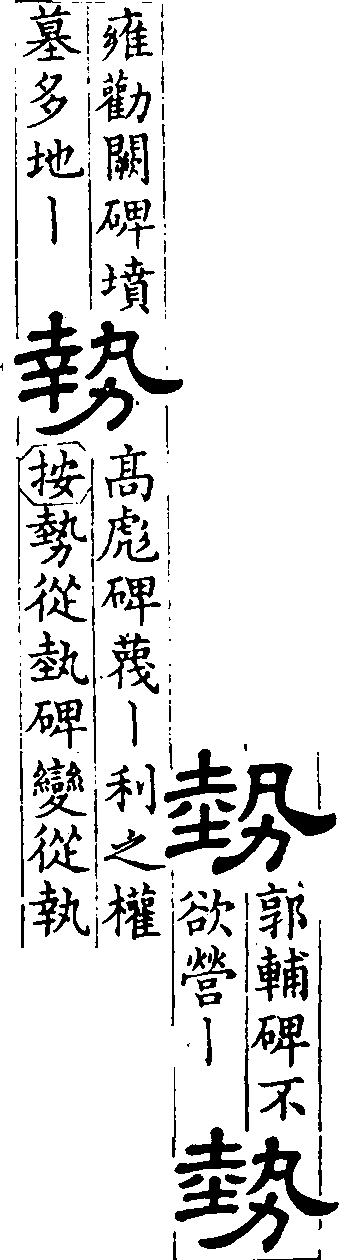 勢
郭輔碑不
欲營丨
勢
雍勸闕碑墳
墓多地丨
勢
高彪碑蔑丨利之權
按勢從埶碑變從執